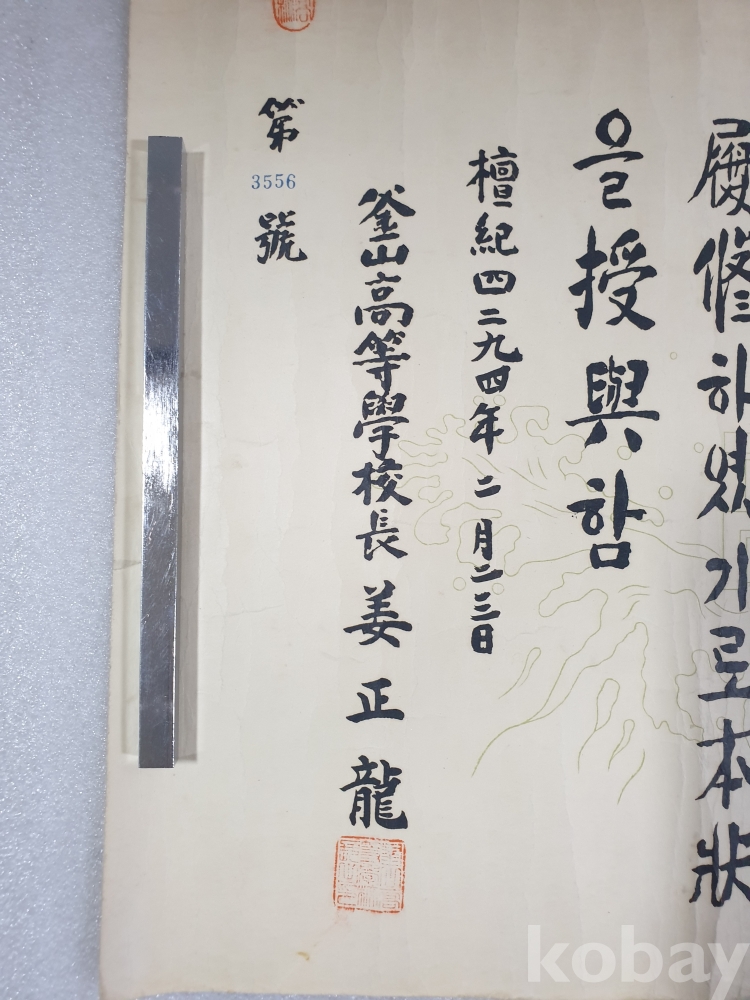 履修하였기로本狀
을授與함
檀紀四二九四年二月二三日
釜山高等學校長姜正龍
第3556號
kobay